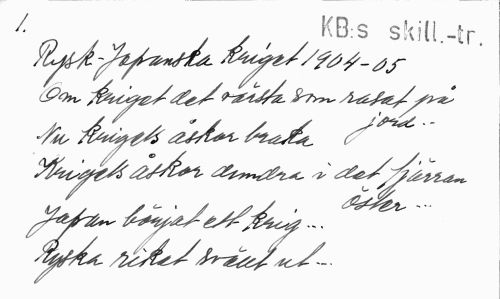 1.
KB:s skill.-tr.
Rysk-Japanska kriget 1904-05
Om kriget det värsta som rasat på
jord...
Nu krigets åskor braka
Krigets åskor dundra i det fjärran
öster...
Japan börjat ett krig...
Ryska riket svälit ut...